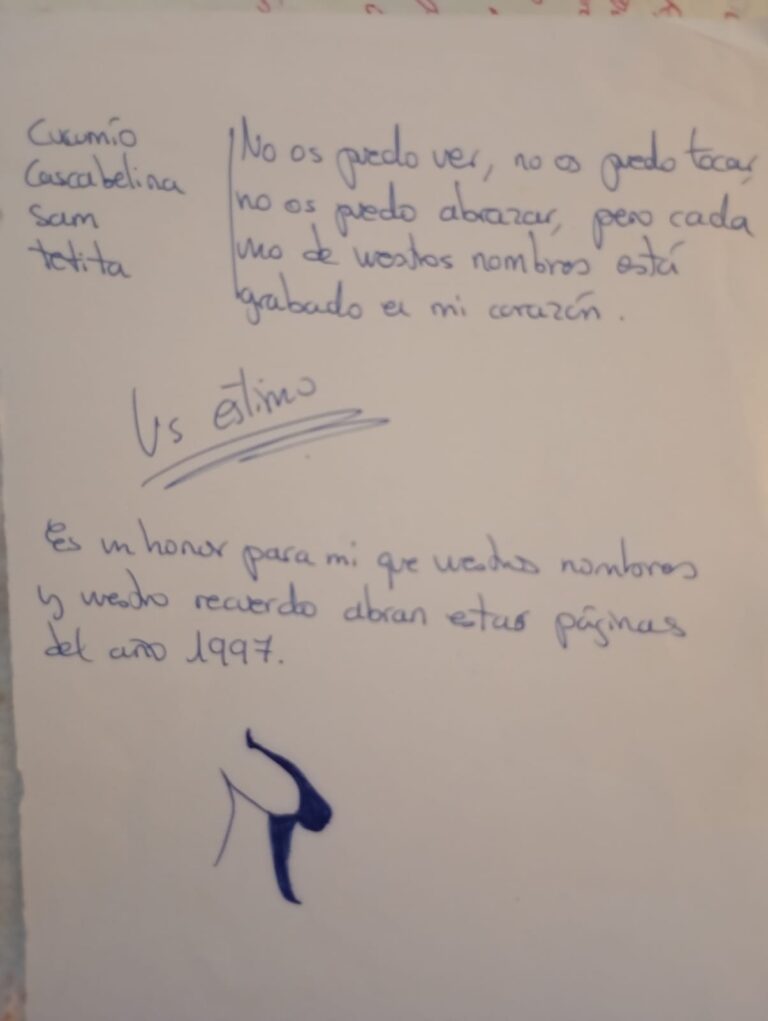 Cucumio
Cascabelina
Sam
tetita
No os puedo ver, no os puedo tocar,
no os puedo abrazar, pero cada
uno de vuestros nombres está
grabado en mi corazón.
Us estimo
Es un honor para mi que vuestros nombres
y vuestro recuerdo abran estas páginas
del año 1997.